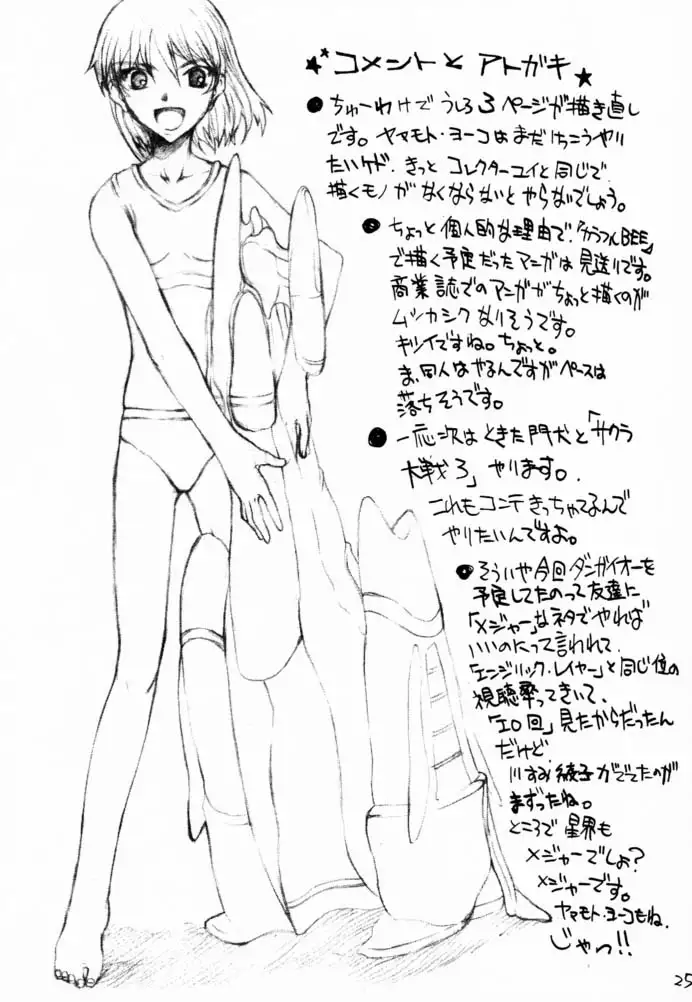 コメントと アトガキ
●ちゅーわけで うしろ3ページが描き直し
です。ヤマモト・ヨーコはまだけっこうやり
たいケド、きっと コレクターユイと同じで
描くモノが なくならないと やらないでしょう。
●ちょっと個人的な理由で、「カラフルBEE」
で描く予定だったマンガは 見送りです。
商業誌でのマンガがちょっと描くのが
ムツカシク なりそうです。
キツイですね。ちょっと。
ま、同人はやるんですがペースは
落ちそうです。
●一応次は ときた門犬と「サクラ
大戦3」やります。
これもコンテきっちゃてるんで
やりたいんですよ。
●そういや今回ダンガイオーを
予定してたのって友達に
「メジャー」なネタでやれば
いいのにって言われて、
「エンジェリック・レイヤー」と同じ位の
視聴率ってきいて、
「エロ回」見たからだったん
だけど、
川すみ綾子がでてたのが
まずったね。
ところで 星界も
メジャーでしょ?
メジャーです。
ヤマモト・ヨーコもね。
じゃっ!!
25